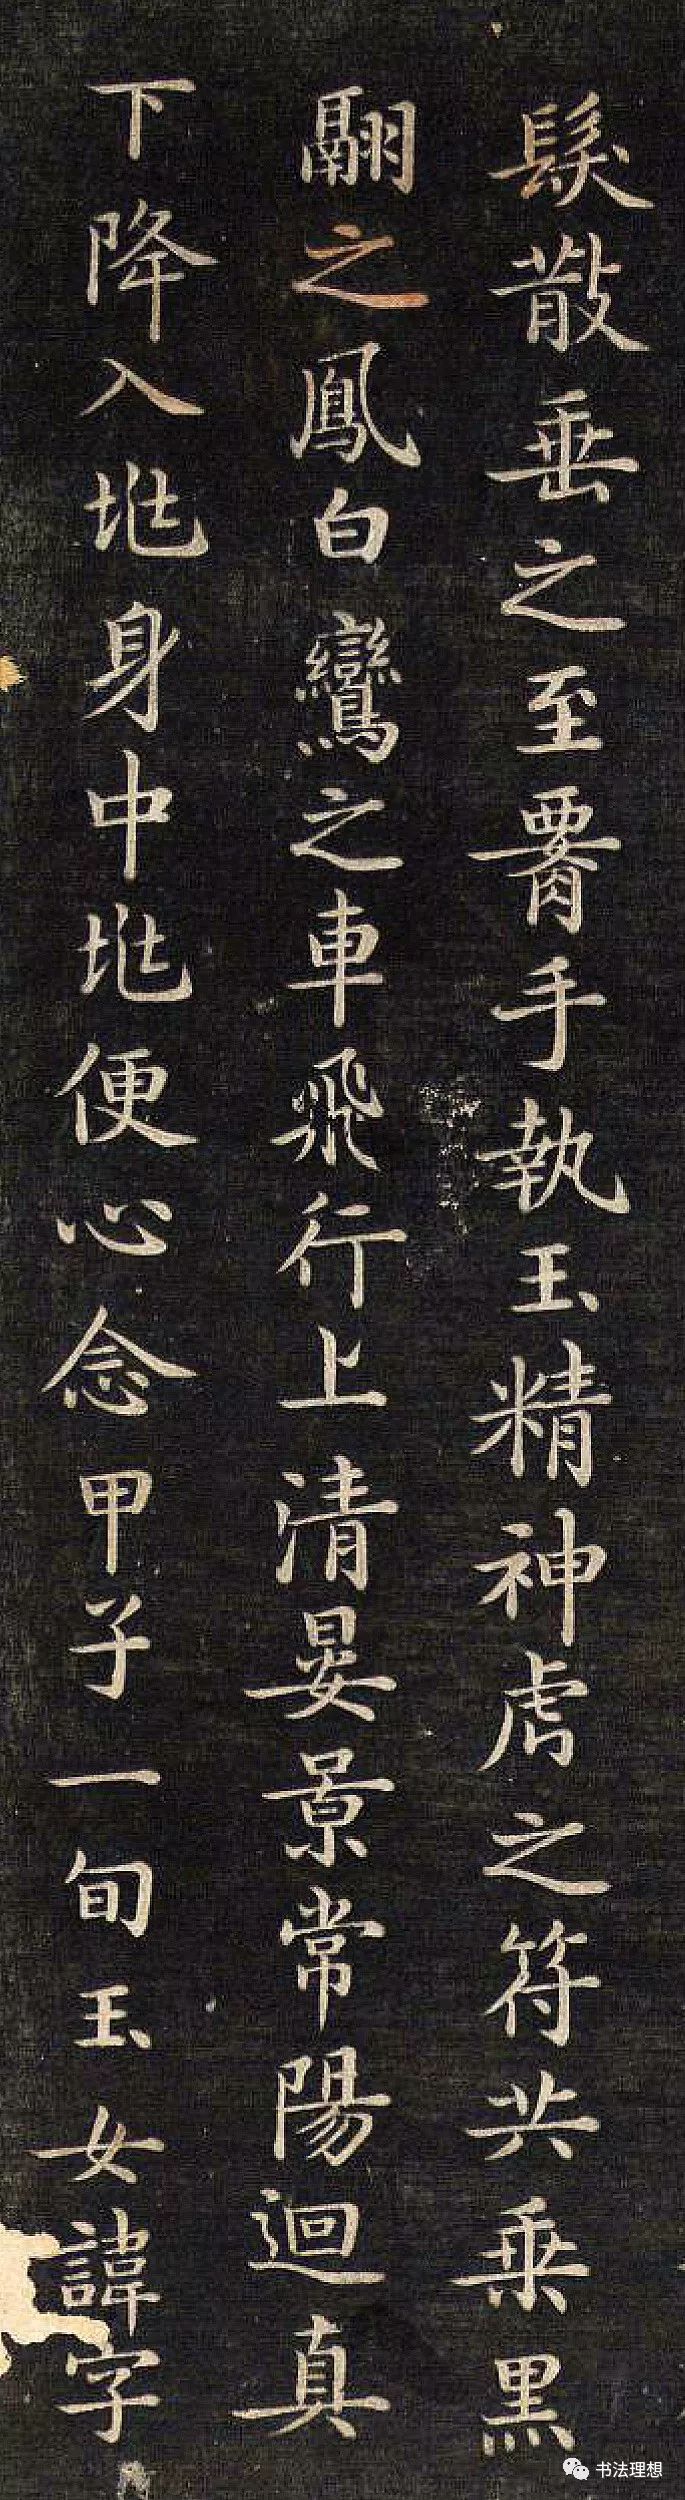 髮散垂之至腰手執玉精神虎之符共乗黑
翮之鳳白鸞之車飛行上清晏景常陽迴真
下降入兆身中兆便心念甲子一旬玉女諱字
书法理想